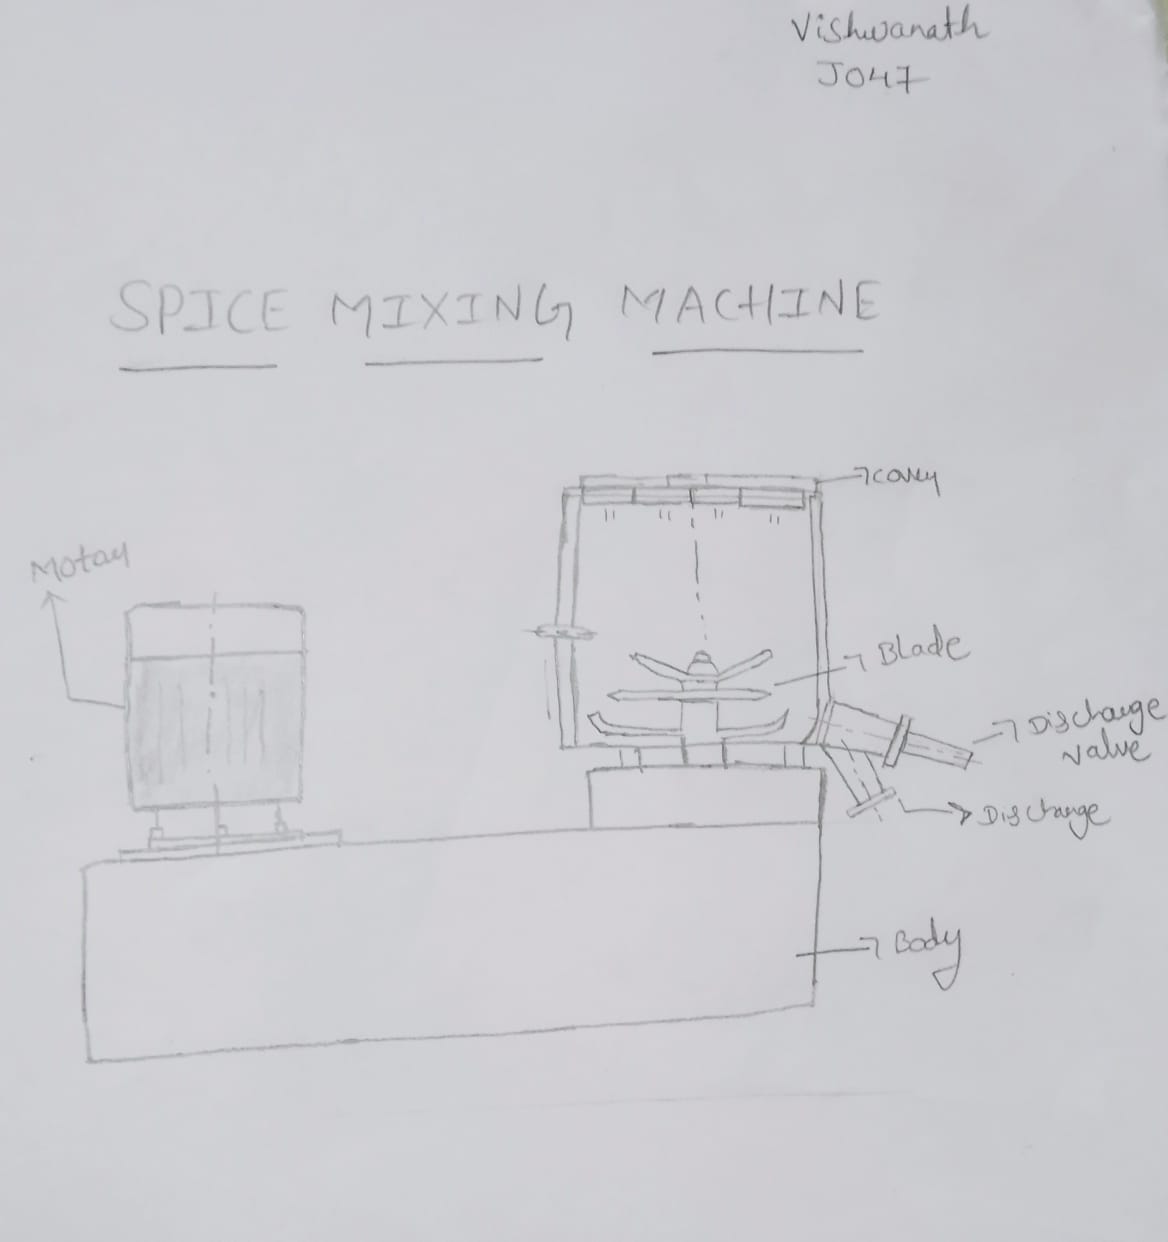 Vishwanath
J047
SPICE MIXING MACHINE
cover
Motor
Blade
Discharge
valve
Discharge
Body